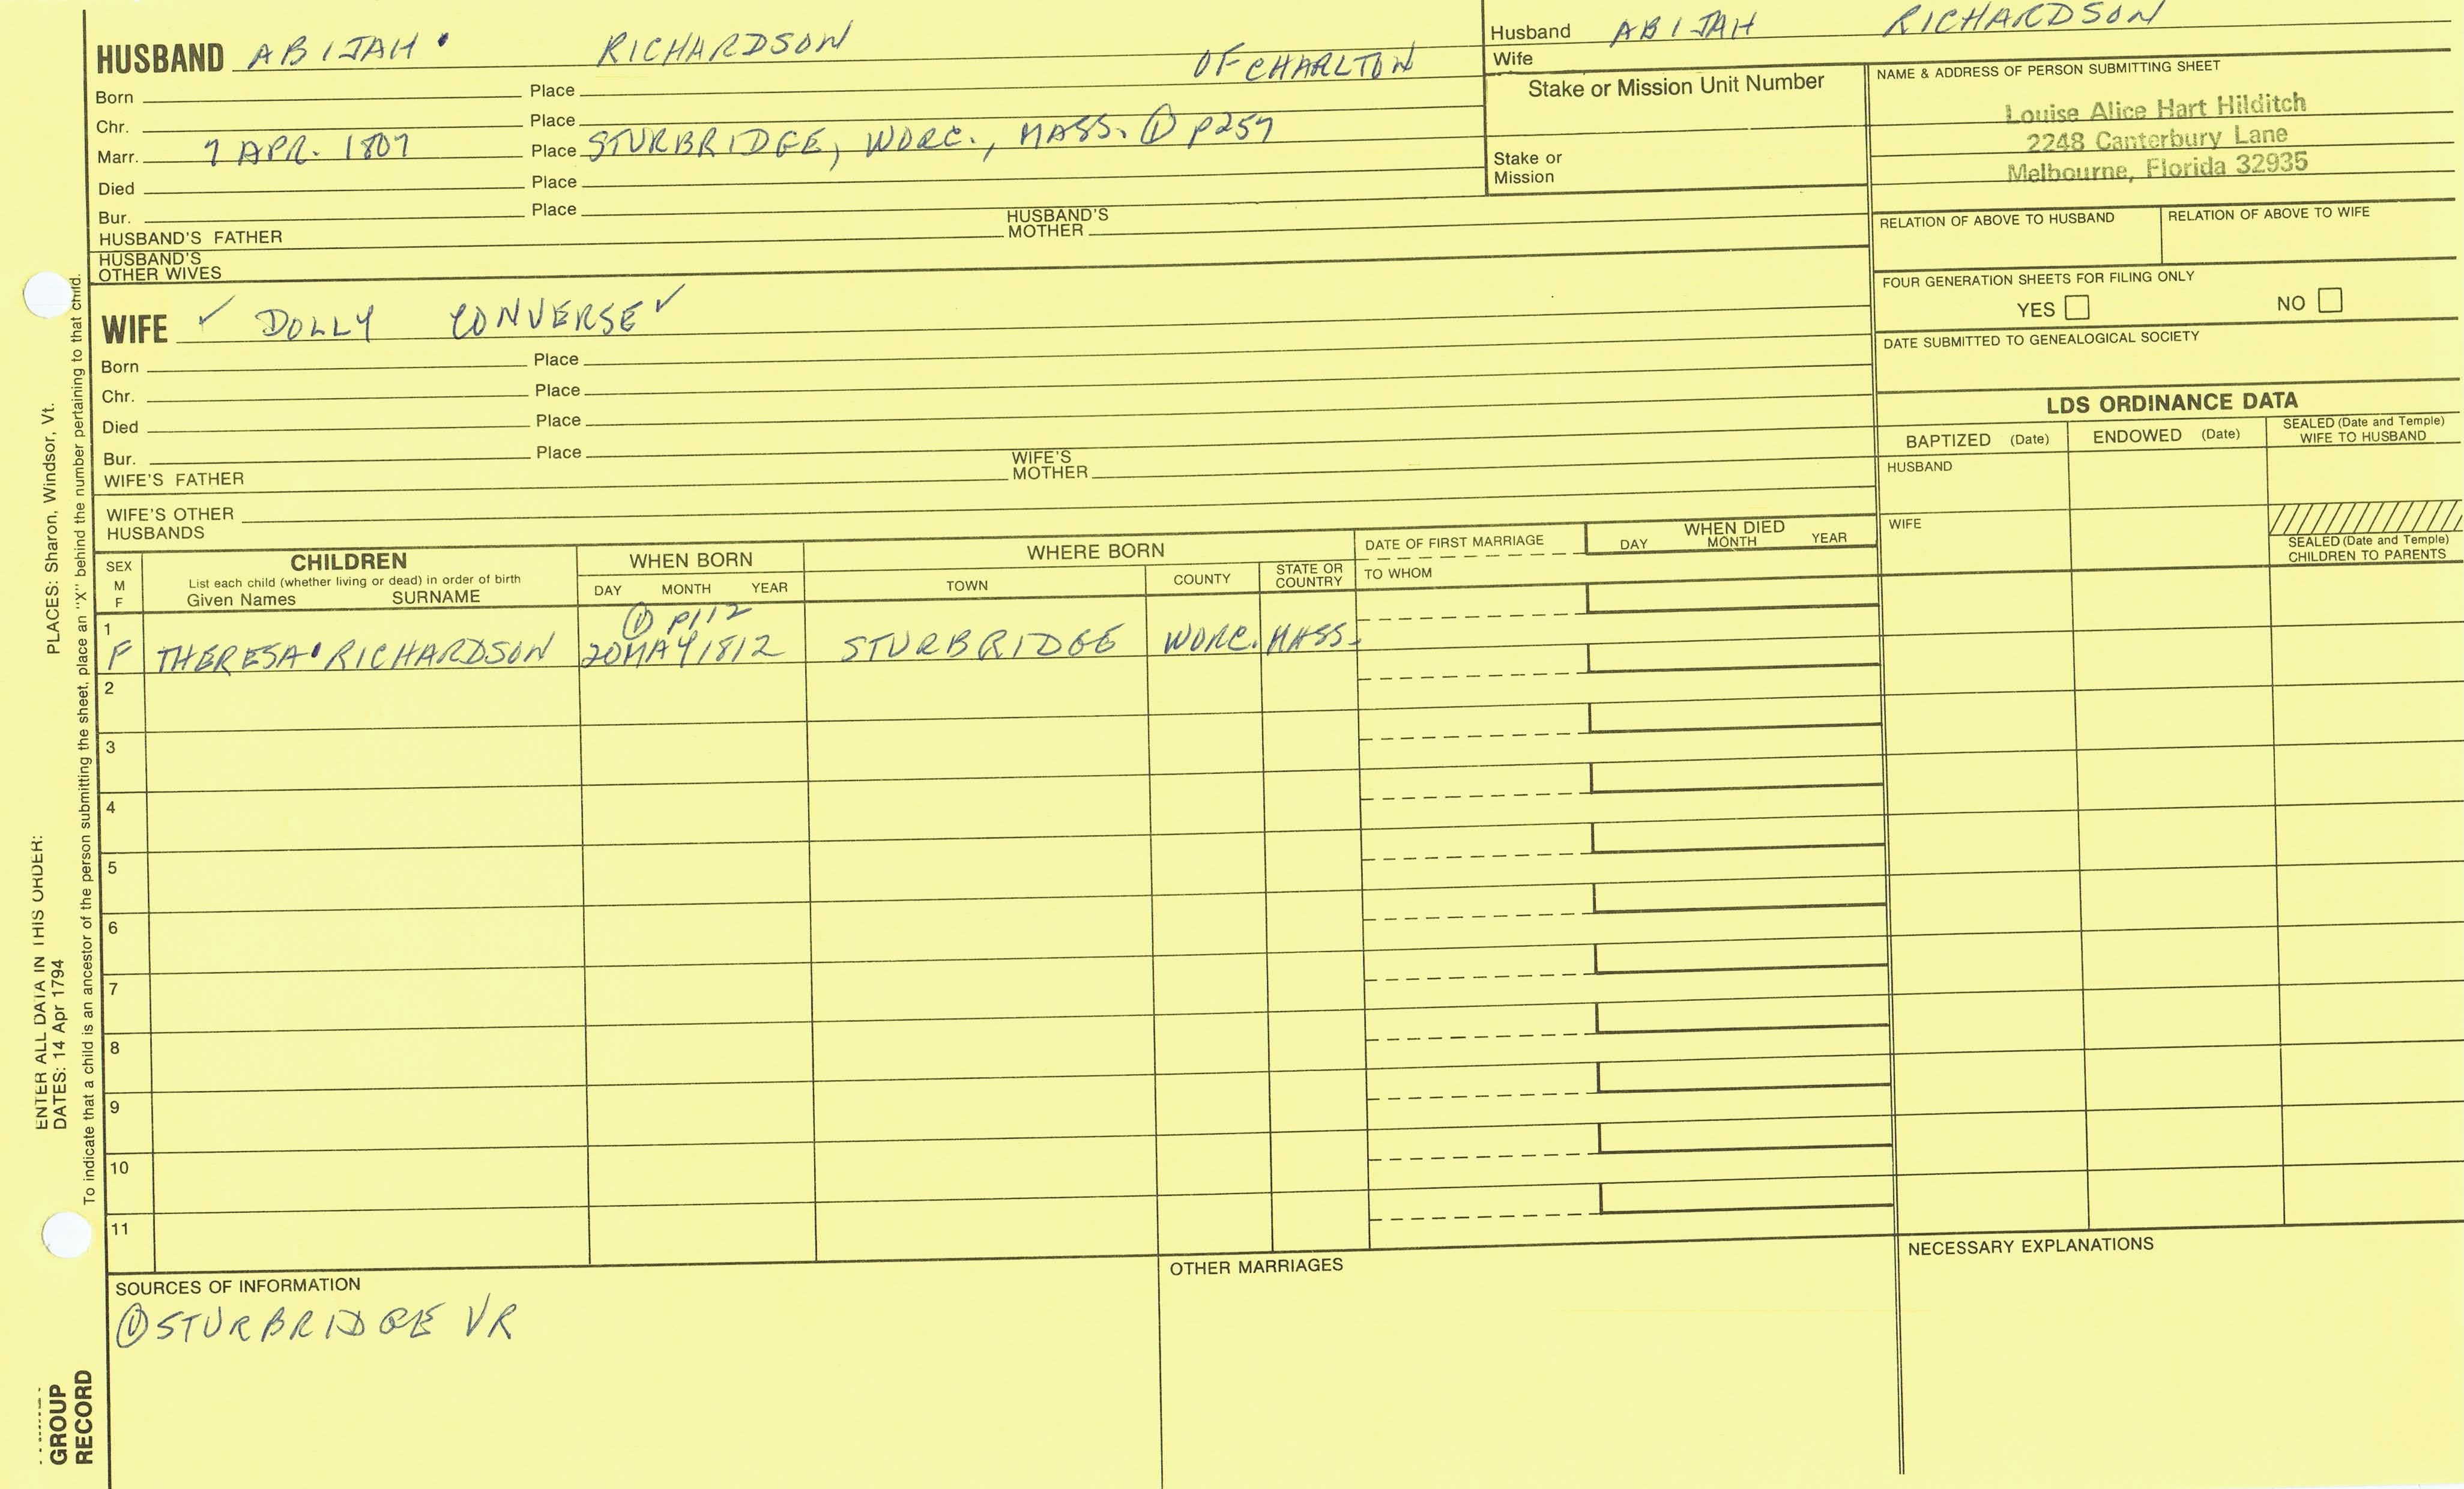 HUSBAND ABIJAH • RICHARDSON OF CHARLTON
Born Place
Chr. Place
Marr. 7 APR. 1807 Place STURBRIDGE, WORC., MASS. ① P257
Died Place
Bur. Place
HUSBAND'S FATHER HUSBAND'S MOTHER
HUSBAND'S OTHER WIVES
Husband ABIJAH RICHARDSON
Wife
Stake or Mission Unit Number
Stake or Mission
NAME & ADDRESS OF PERSON SUBMITTING SHEET
Louise Alice Hart Hilditch
2248 Canterbury Lane
Melbourne, Florida 32935
RELATION OF ABOVE TO HUSBAND RELATION OF ABOVE TO WIFE
FOUR GENERATION SHEETS FOR FILING ONLY
YES NO
DATE SUBMITTED TO GENEALOGICAL SOCIETY
WIFE ✓ DOLLY CONVERSE ✓
Born Place
Chr. Place
Died Place
Bur. Place
WIFE'S FATHER WIFE'S MOTHER
WIFE'S OTHER HUSBANDS
LDS ORDINANCE DATA
BAPTIZED (Date) ENDOWED (Date) SEALED (Date and Temple) WIFE TO HUSBAND
HUSBAND
WIFE
SEALED (Date and Temple) CHILDREN TO PARENTS
SEX M F
CHILDREN
List each child (whether living or dead) in order of birth
Given Names SURNAME
WHEN BORN
DAY MONTH YEAR
WHERE BORN
TOWN COUNTY STATE OR COUNTRY
DATE OF FIRST MARRIAGE
TO WHOM
WHEN DIED
DAY MONTH YEAR
① P112
1 F THERESA • RICHARDSON 20 MAY 1812 STURBRIDGE WORC. MASS.
2
3
4
5
6
7
8
9
10
11
SOURCES OF INFORMATION
① STURBRIDGE VR
OTHER MARRIAGES
NECESSARY EXPLANATIONS
ENTER ALL DATA IN THIS ORDER:
DATES: 14 Apr 1794 PLACES: Sharon, Windsor, Vt.
To indicate that a child is an ancestor of the person submitting the sheet, place an "X" behind the number pertaining to that child.
GROUP
RECORD